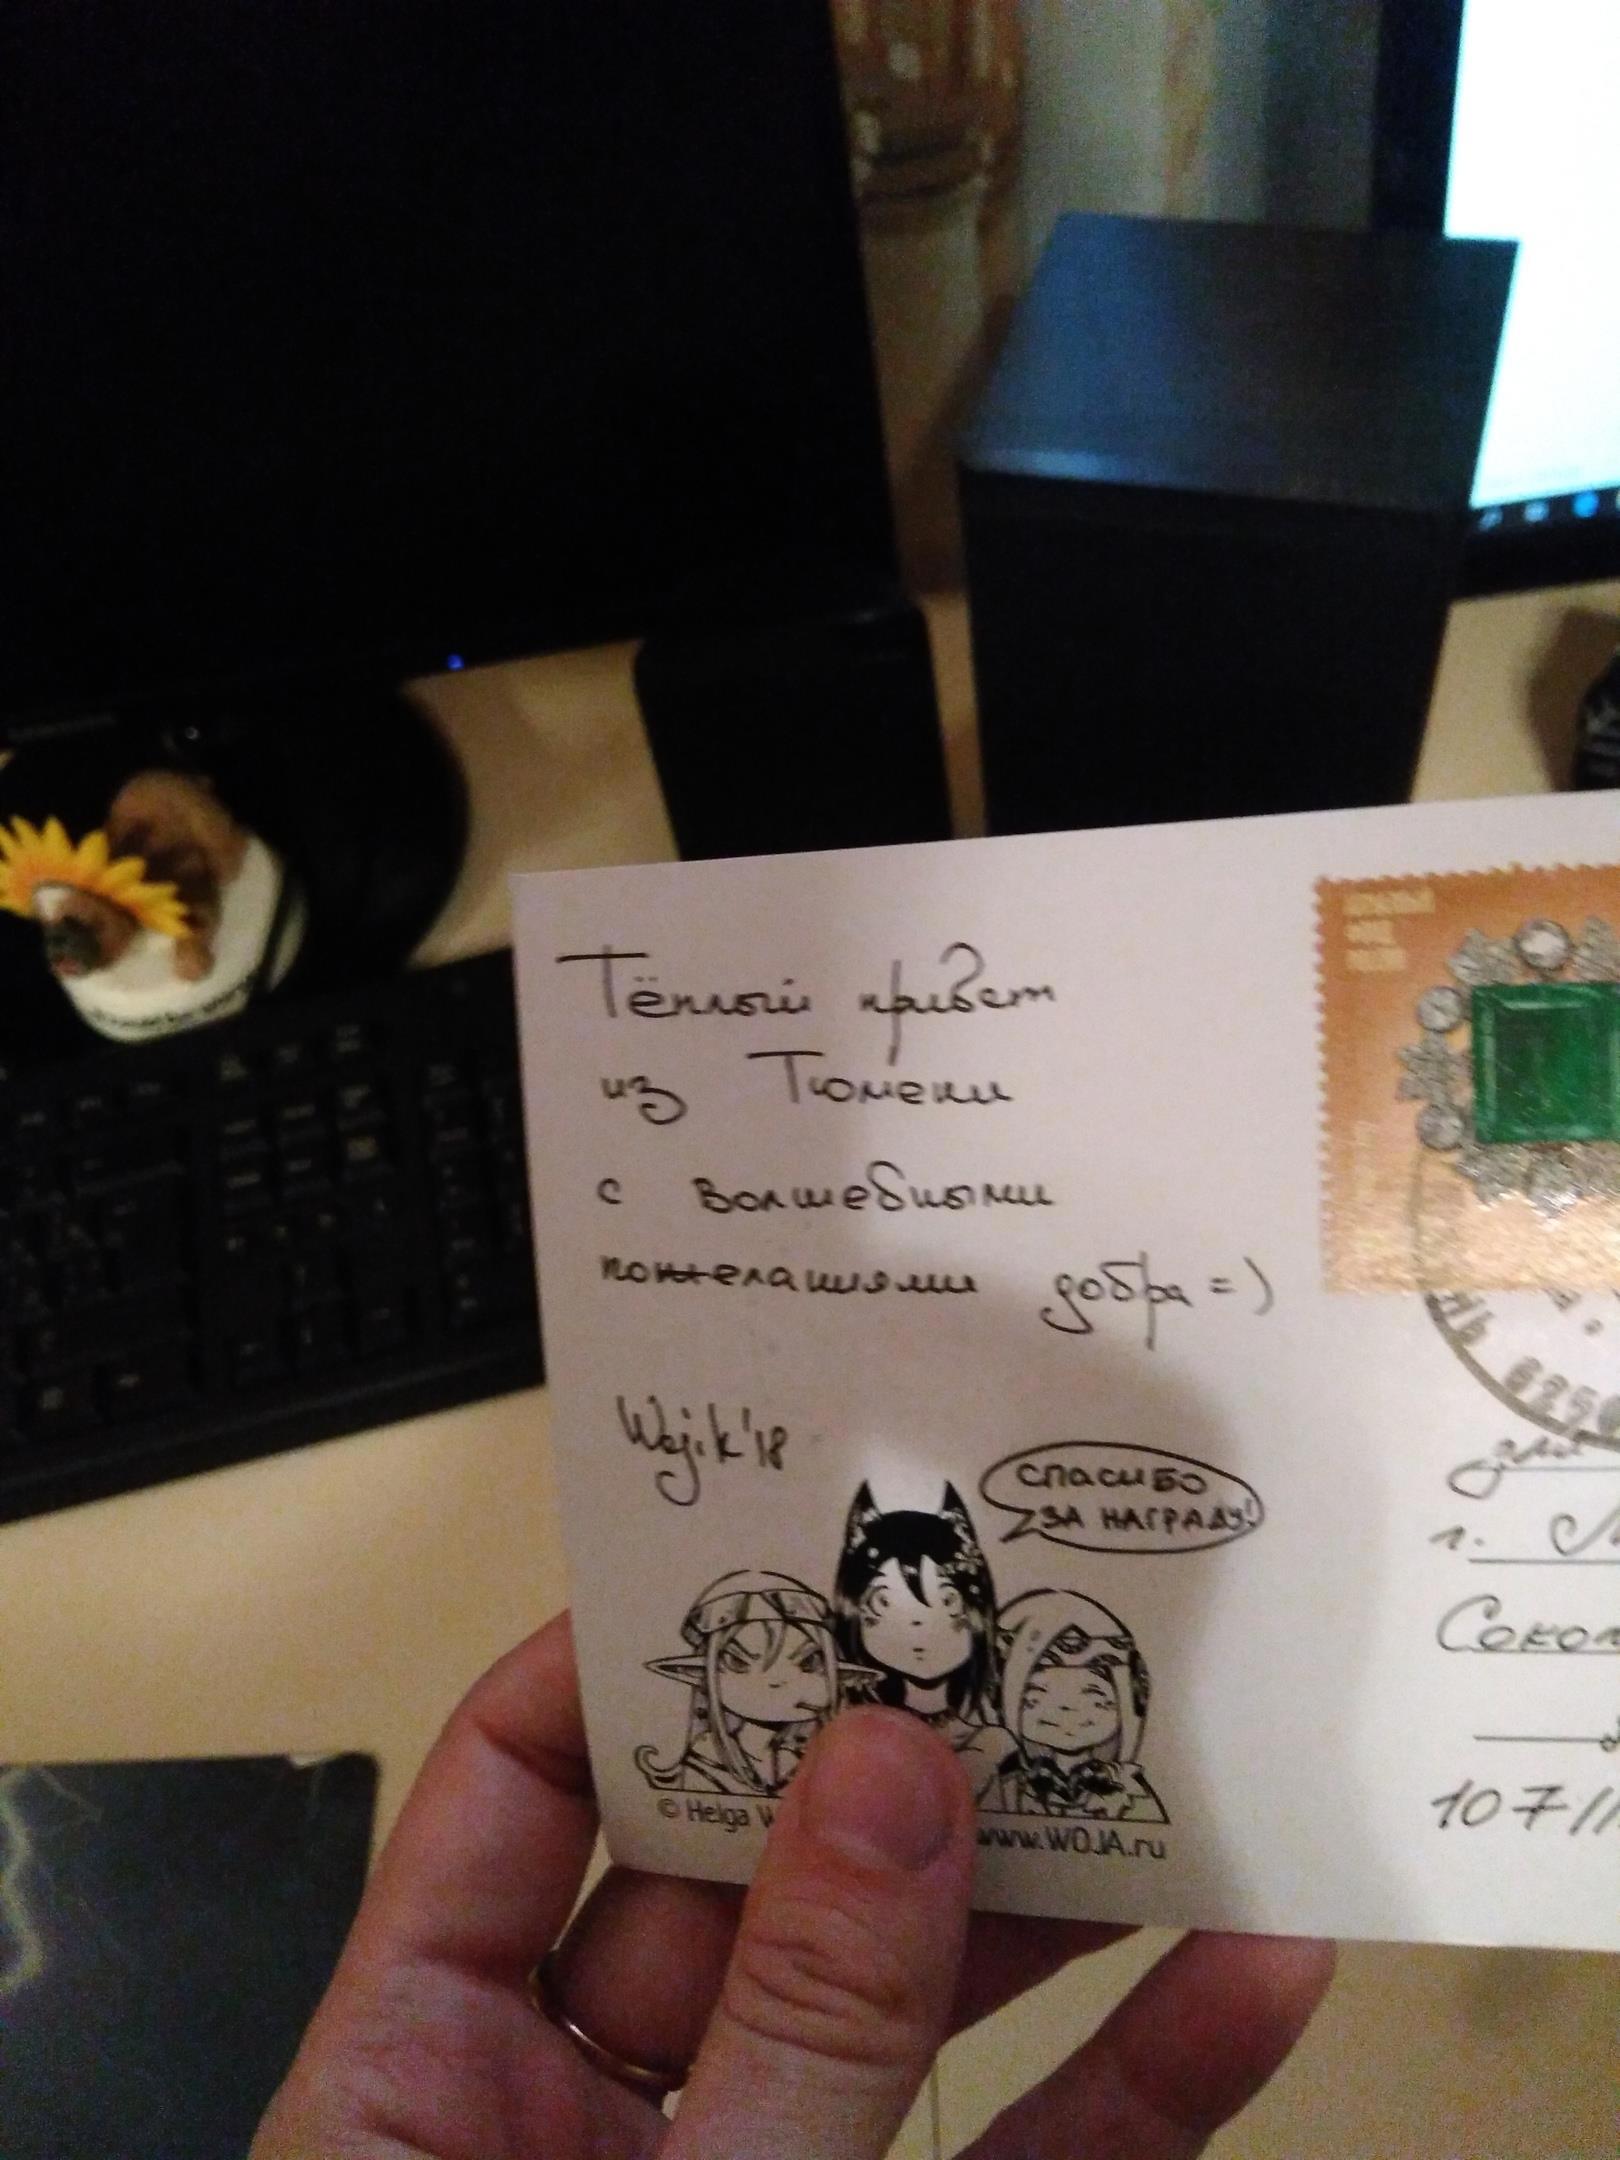 Тёплый привет
из Тюмени
с волшебными
пожеланиями добра =)
Wojik'18
СПАСИБО
ЗА НАГРАДУ!
© Helga
www.WOJA.ru
625
г.
107